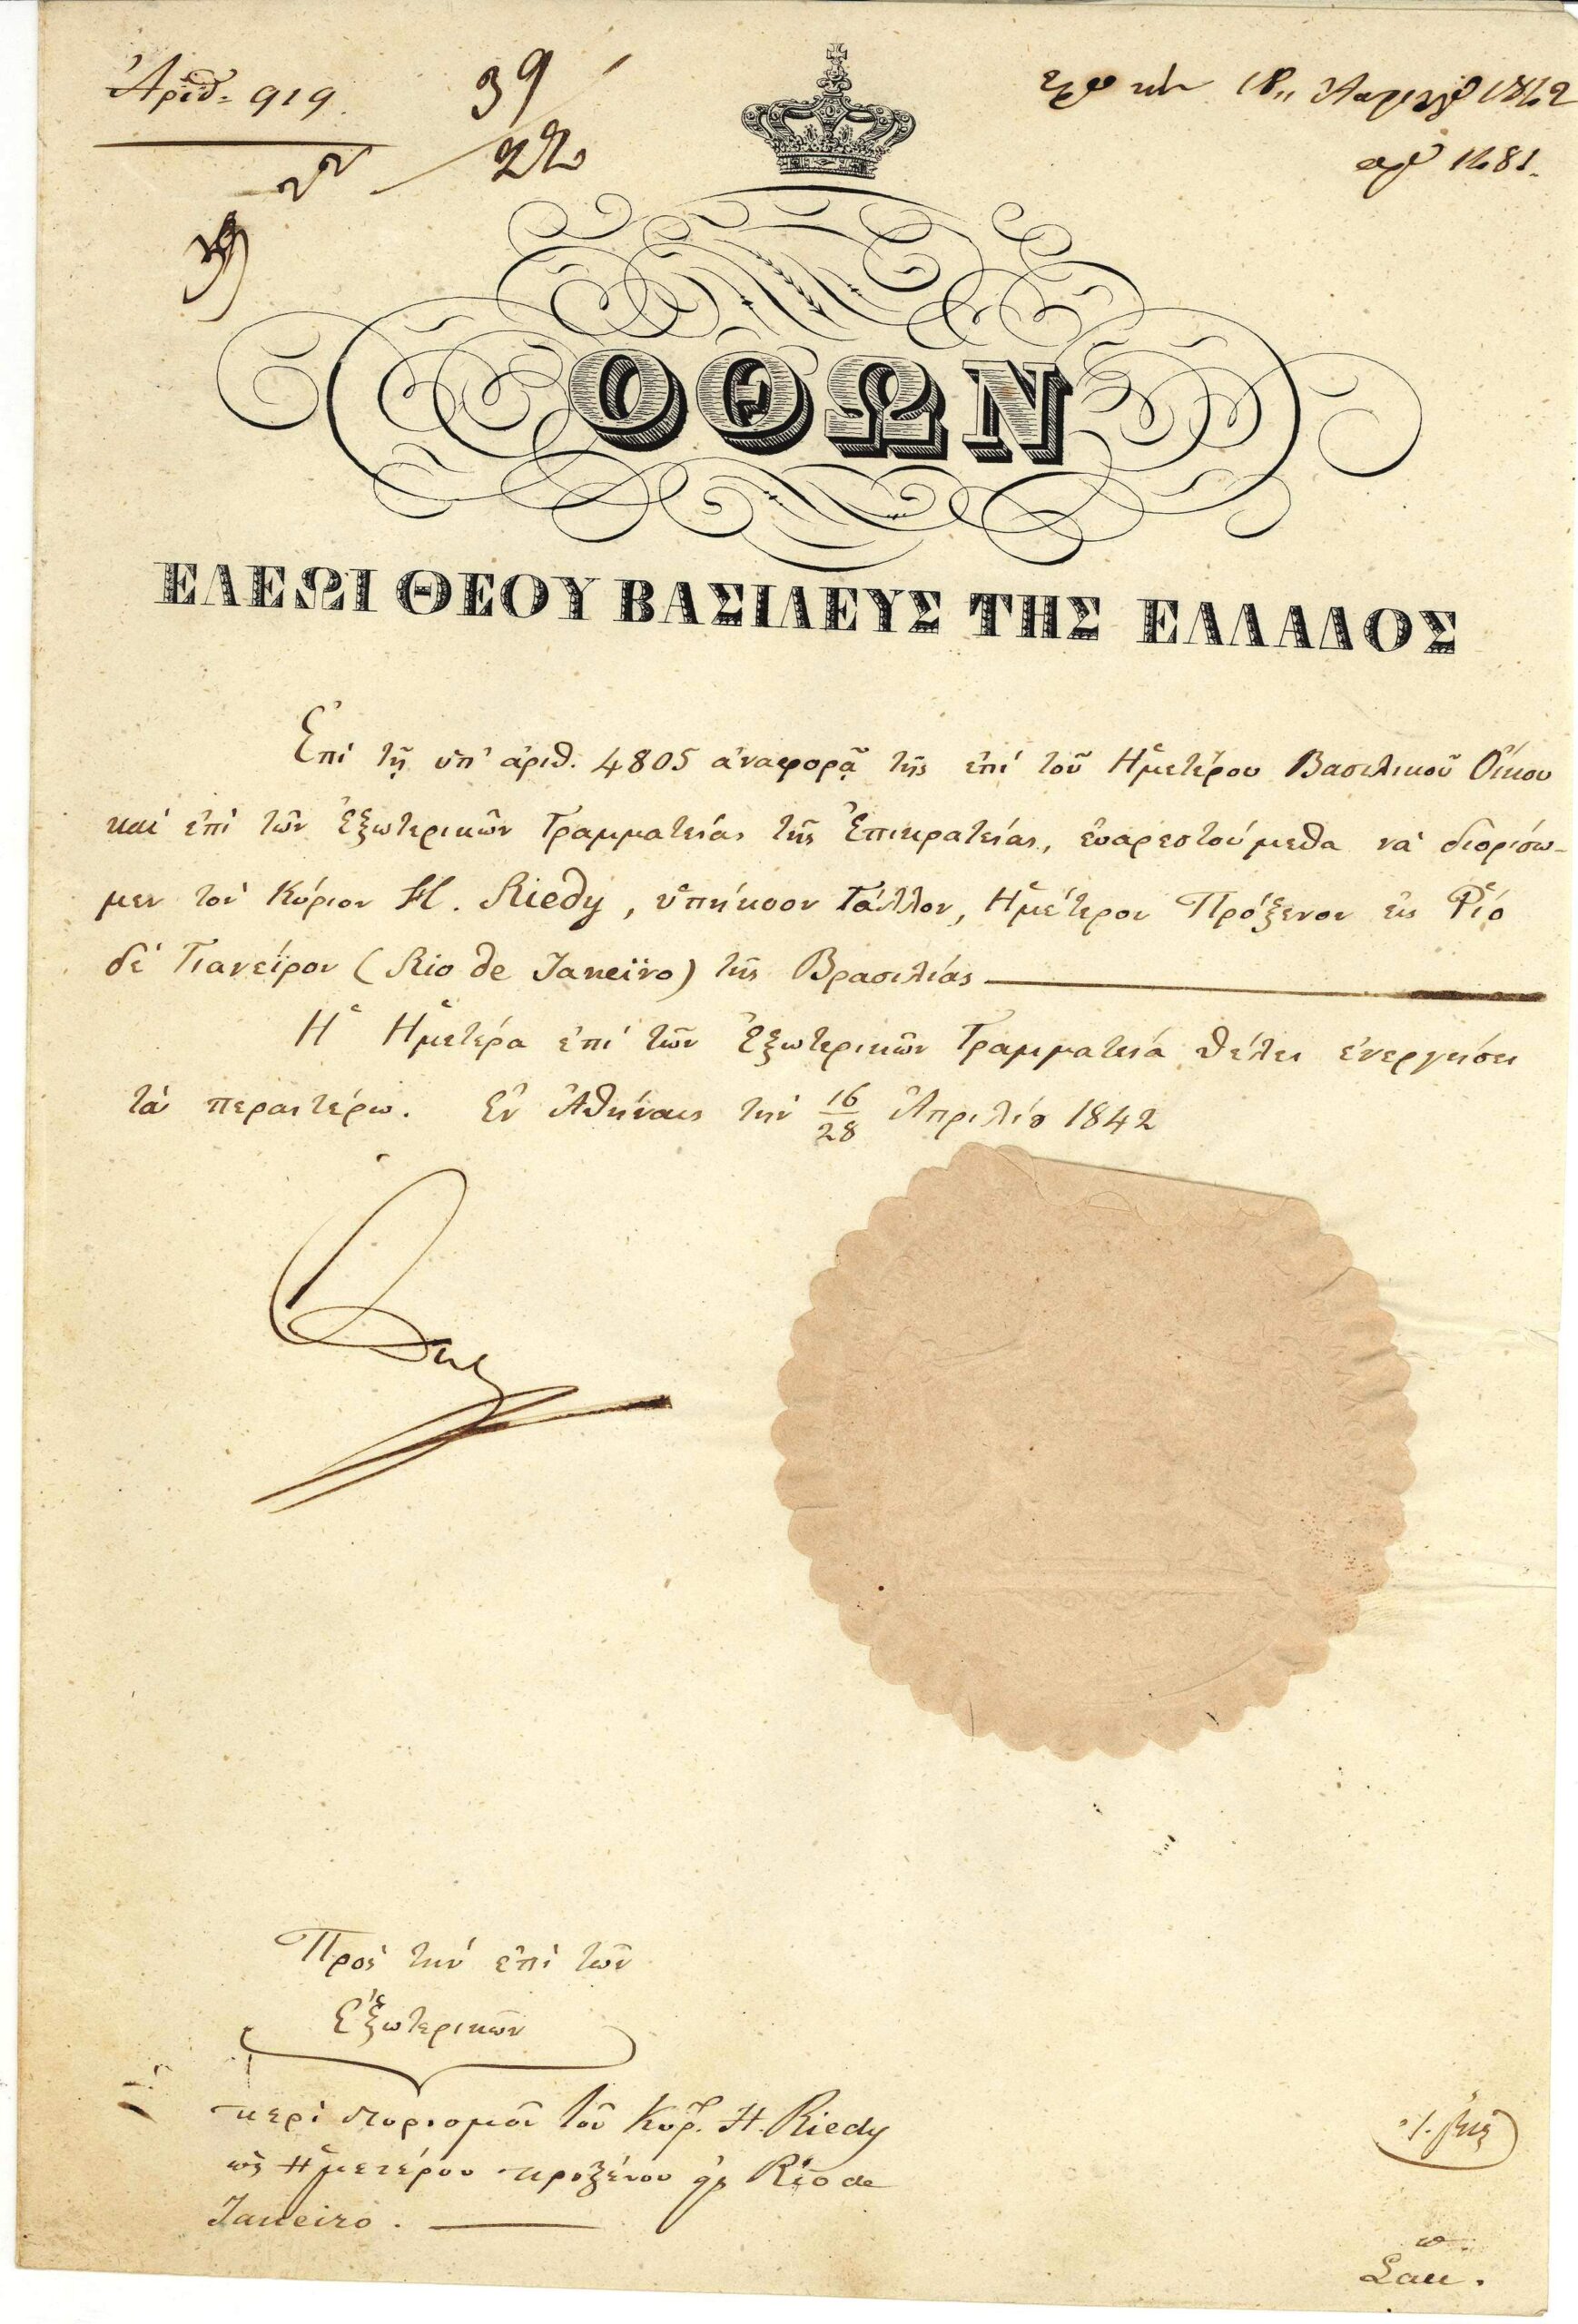 Ἀριθ. 919.
39
22
22
39
18 Ἀπριλίου 1842
ΟΘΩΝ
ΕΛΕΩΙ ΘΕΟΥ ΒΑΣΙΛΕΥΣ ΤΗΣ ΕΛΛΑΔΟΣ
Ἐπὶ τῇ ὑπ' ἀριθ. 4805 ἀναφορᾷ τῆς ἐπὶ τοῦ Ἡμετέρου Βασιλικοῦ Οἴκου
καὶ ἐπὶ τῶν Ἐξωτερικῶν Γραμματείας τῆς Ἐπικρατείας, εὐαρεστούμεθα νὰ διορίσω-
μεν τὸν Κύριον H. Riedy, ὑπήκοον Γάλλον, Ἡμέτερον Πρόξενον εἰς Ῥίο
δὲ Γιανεῖρον (Rio de Janeïro) τῆς Βρασιλίας
Ἡ Ἡμετέρα ἐπὶ τῶν Ἐξωτερικῶν Γραμματεία θέλει ἐνεργήσει
τὰ περαιτέρω. Ἐν Ἀθήναις τὴν 16/28 Ἀπριλίου 1842
Πρὸς τὴν ἐπὶ τῶν
Ἐξωτερικῶν
περὶ διορισμοῦ τοῦ Κυρ. H. Riedy
ὡς Ἡμετέρου προξένου εἰς Rio de
Janeiro.